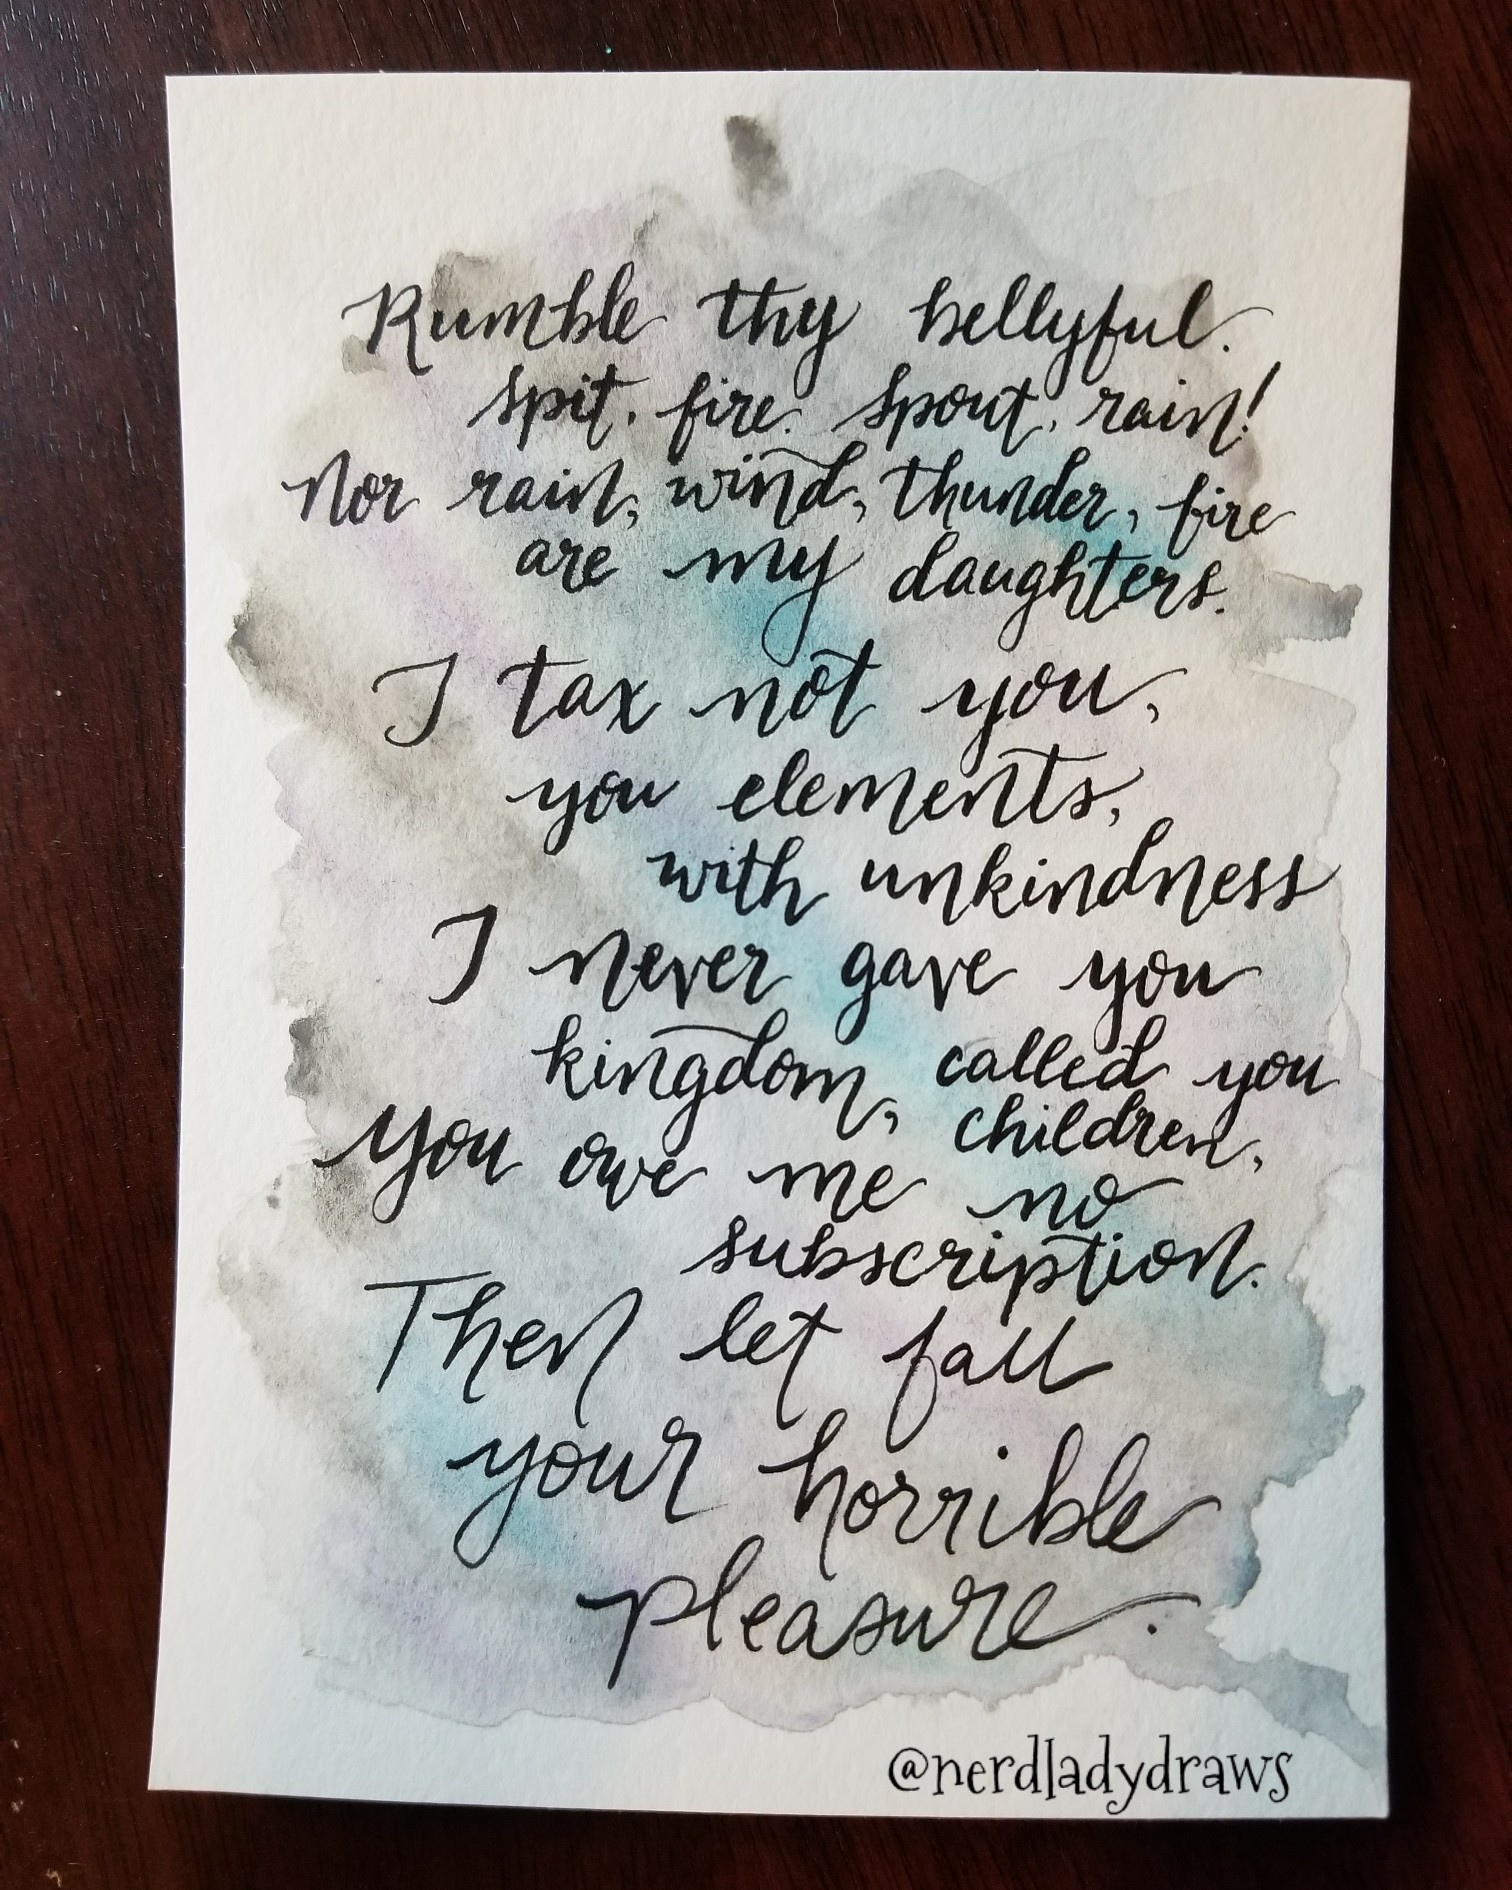 Rumble thy bellyful.
spit, fire. spout, rain!
Nor rain, wind, thunder, fire
are my daughters.
I tax not you,
you elements,
with unkindness
I never gave you
kingdom, called you
children,
You owe me no
subscription.
Then let fall
your horrible
pleasure.
@nerdladydraws